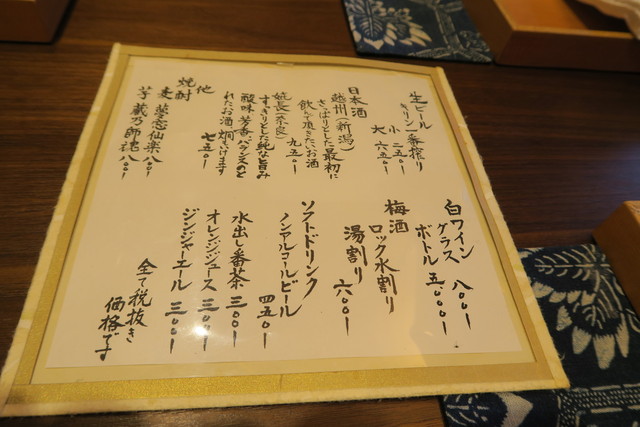 生ビール
キリン一番搾り
小 二五〇ー
大 六五〇ー
日本酒
越州（新潟）
さっぱりとした最初に
飲んで頂きたいお酒
九五〇ー
（奈良）
すっきりとした純な旨み
酸味 芳香 バランスのと
れたお酒 燗もつけます
七五〇ー
他
焼酎
麦 夢恋仙楽 八〇〇ー
芋 蔵乃師魂 八〇〇ー
白ワイン
グラス 八〇〇ー
ボトル 五、〇〇〇ー
梅酒
ロック水割り
湯割り 六〇〇ー
ソフトドリンク
ノンアルコールビール 四五〇ー
水出し番茶 三〇〇ー
オレンジジュース 三〇〇ー
ジンジャーエール 三〇〇ー
全て税抜き
価格です